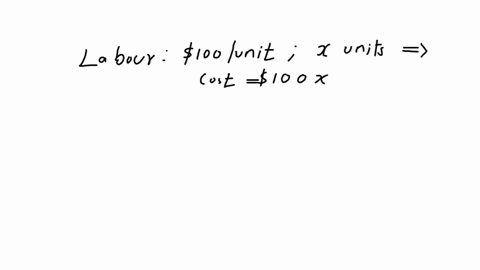 Labour: $100/unit ; x units =>
cost = $100x